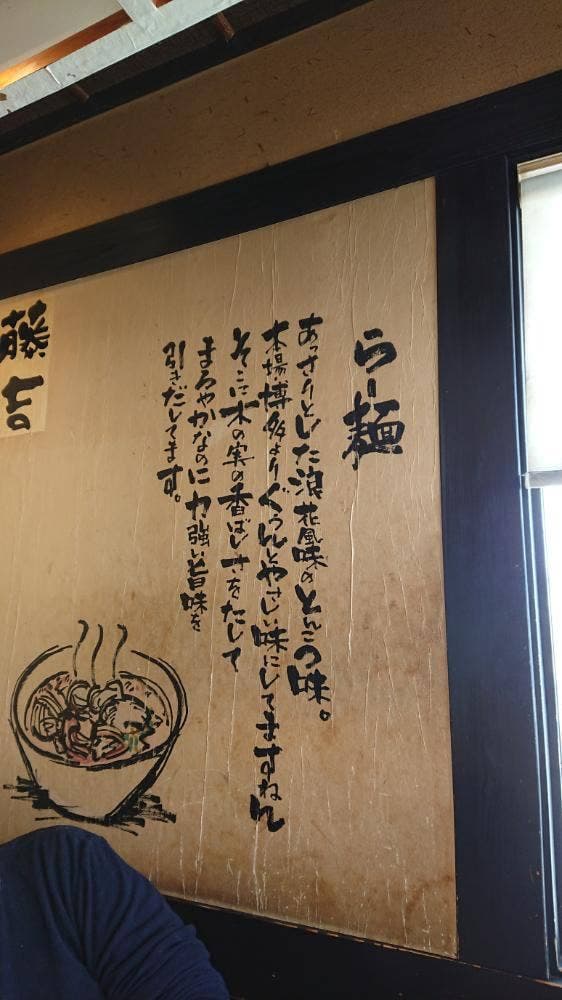 らー麺
あっさりとした浪花風味のとんこつ味。
本場博多よりぐぅんとやさしい味にしてますねん
そこに木の実の香ばしさをたして
まろやかなのに力強い旨味を
引きだしてます。
藤吉